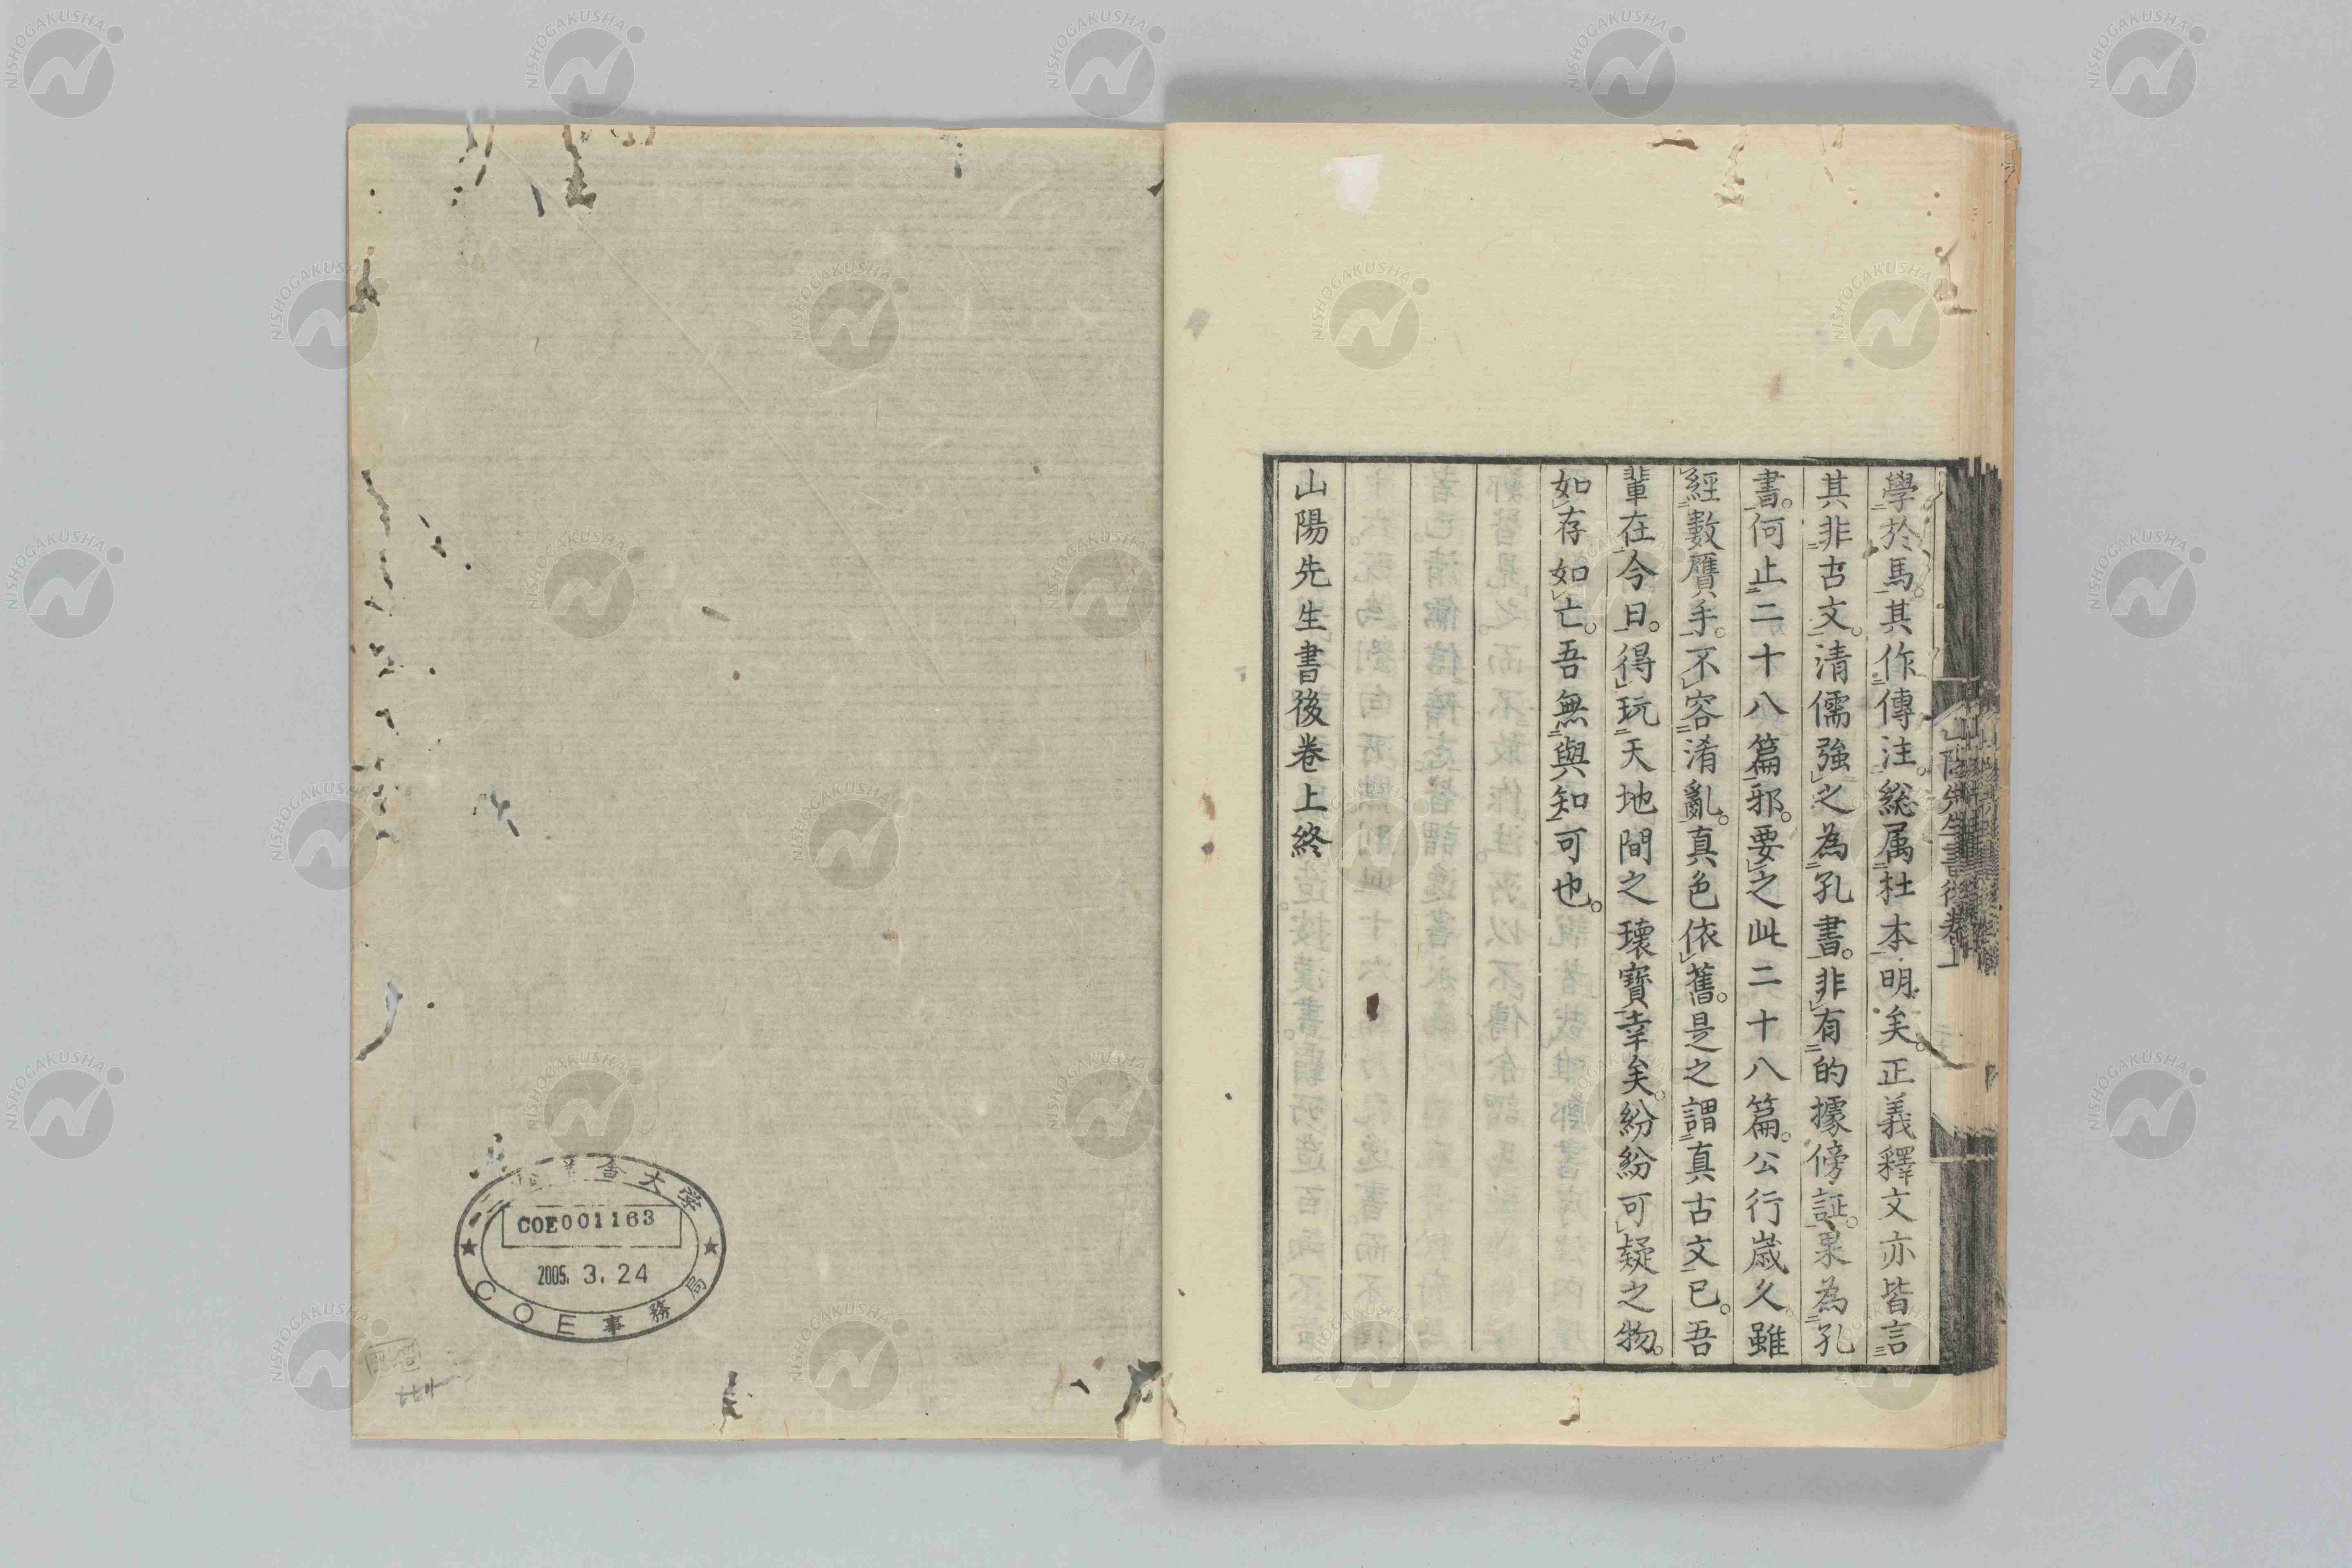 學於馬。其作傳注。総属杜本明矣。正義釋文亦皆言
其非古文。清儒強之為孔書。非有的據傍証。果為孔
書。何止二十八篇邪。要之此二十八篇。公行歳久。雖
經數贋手。不容淆亂。真色依舊。是之謂真古文已。吾
輩在今日。得玩天地間之瓌寳幸矣。紛紛可疑之物。
如存如亡。吾無與知可也。
山陽先生書後卷上終
山陽先生書後卷上
大学
COE001163
2005. 3. 24
COE事務局
NISHOGAKUSHA